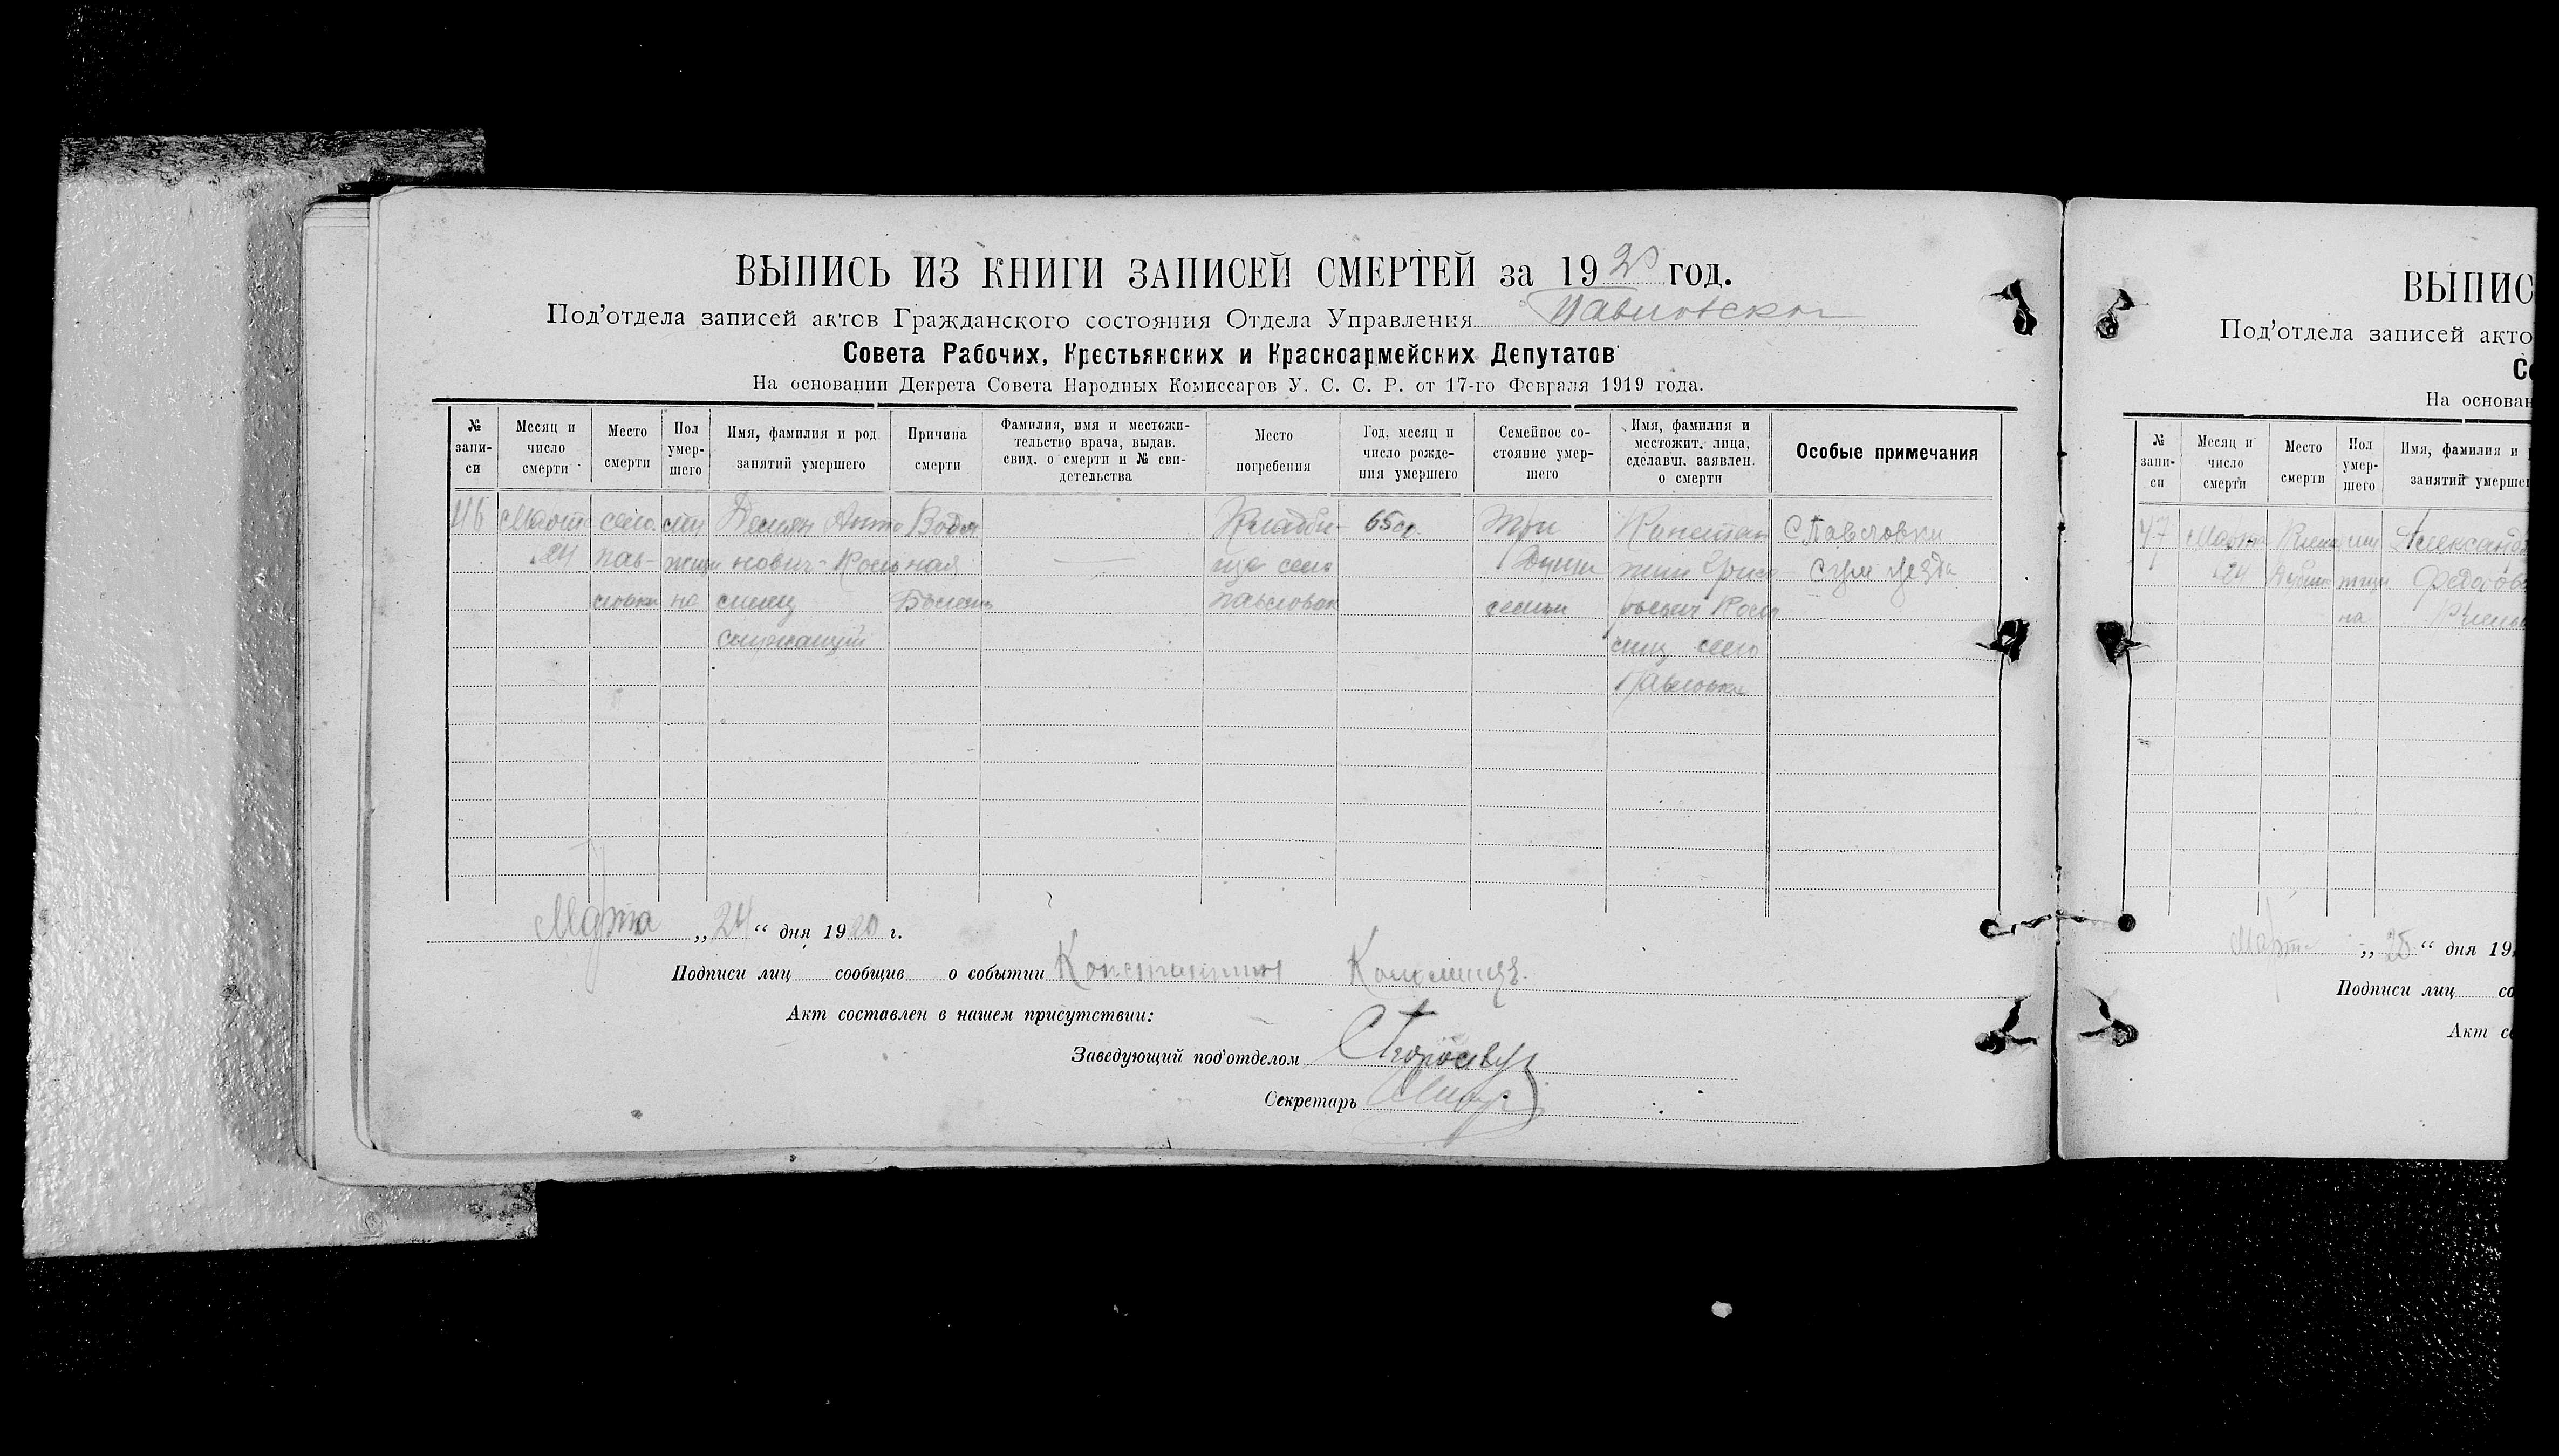 ВЫПИСЬ ИЗ КНИГИ ЗАПИСЕЙ СМЕРТЕЙ за 1920 год.
Под'отдела записей актов Гражданского состояния Отдела Управления Павловской
Совета Рабочих, Крестьянских и Красноармейских Депутатов
На основании Декрета Совета Народных Комиссаров У. С. С. Р. от 17-го Февраля 1919 года.
№ запи-си
Месяц и число смерти
Место смерти
Пол умер-шего
Имя, фамилия и род занятий умершего
Причина смерти
Фамилия, имя и местожи-тельство врача, выдав. свид. о смерти и № сви-детельства
Место погребения
Год, месяц и число рожде-ния умершего
Семейное со-стояние умер-шего
Имя, фамилия и местожит. лица, сделавш. заявлен. о смерти
Особые примечания
46
Март 24
село Пав-ловки
Демян Анто-нович Коло-миец
Водя-ная Болезнь
Кладби-ще село Павловок
65 л.
три Души семьи
Констан-тин
село Павловки
С Павловки
Сум уезда
Марта „24“ дня 1920 г.
Подписи лиц сообщив о событии Константин Коломиецъ.
Акт составлен в нашем присутствии:
Заведующий под'отделом
Секретарь
ВЫПИС
Под'отдела записей акто
Со
На основан
№ запи-си
Месяц и число смерти
Место смерти
Пол умер-шего
Имя, фамилия и
занятий умерше
47
Марта 24
Александ
Федоров
Марта „25“ дня 19
Подписи лиц со
Акт со